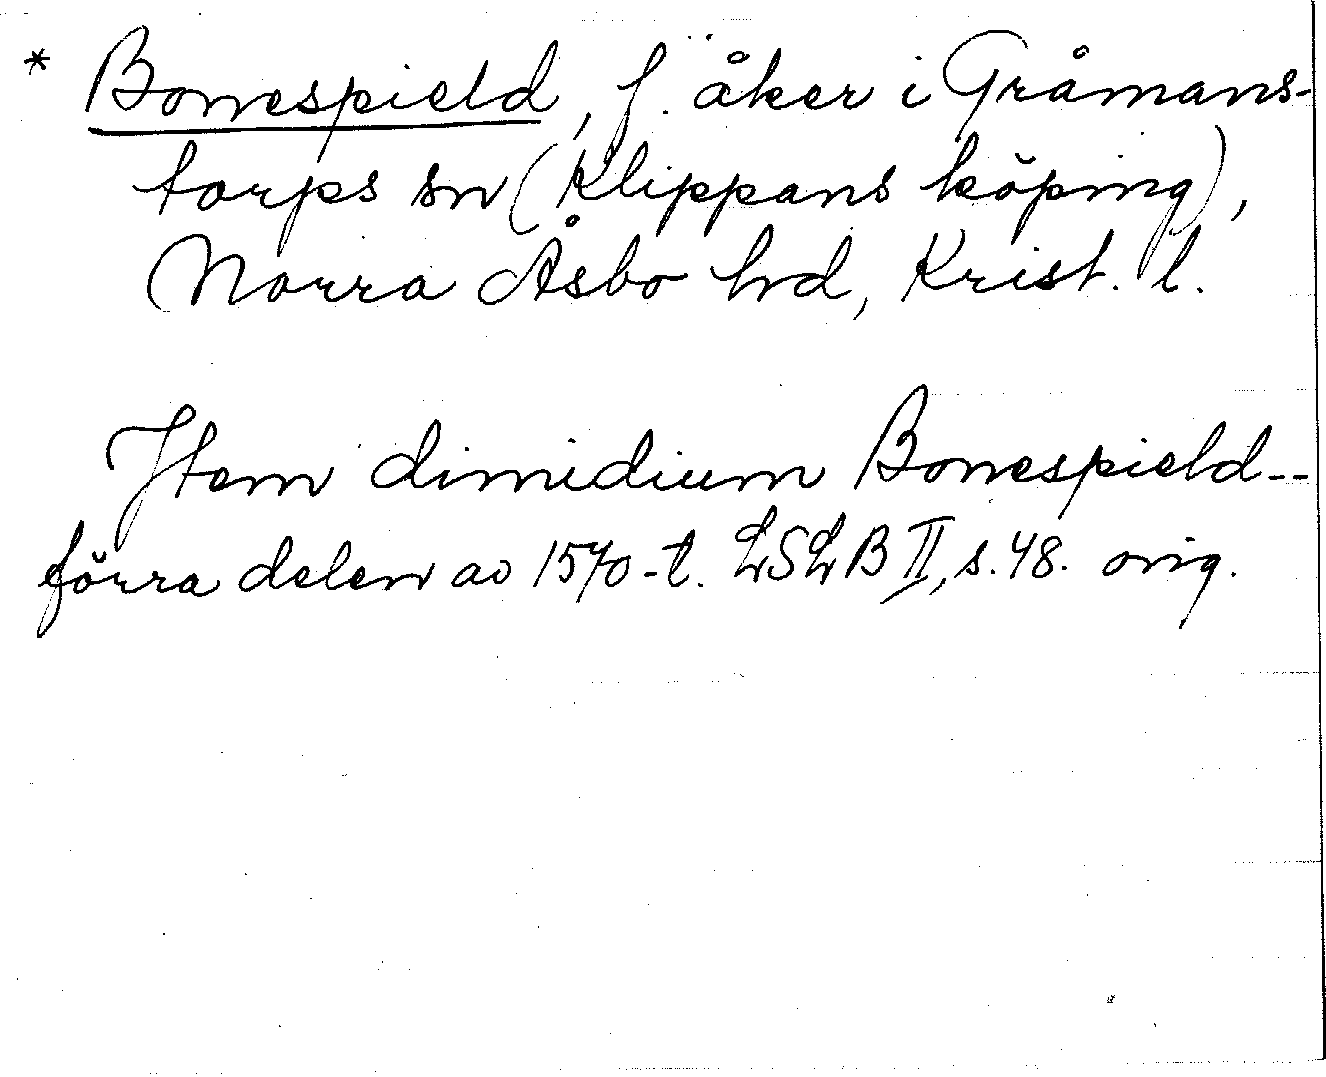 * Bonnespield, f. åker i Gråmans-
torps sn (Klippans köping),
Norra Åsbo hd, Krist. l.
Item dimidium Bonnespield--
förra delen av 1570-t. LSLB II, s. 48. orig.